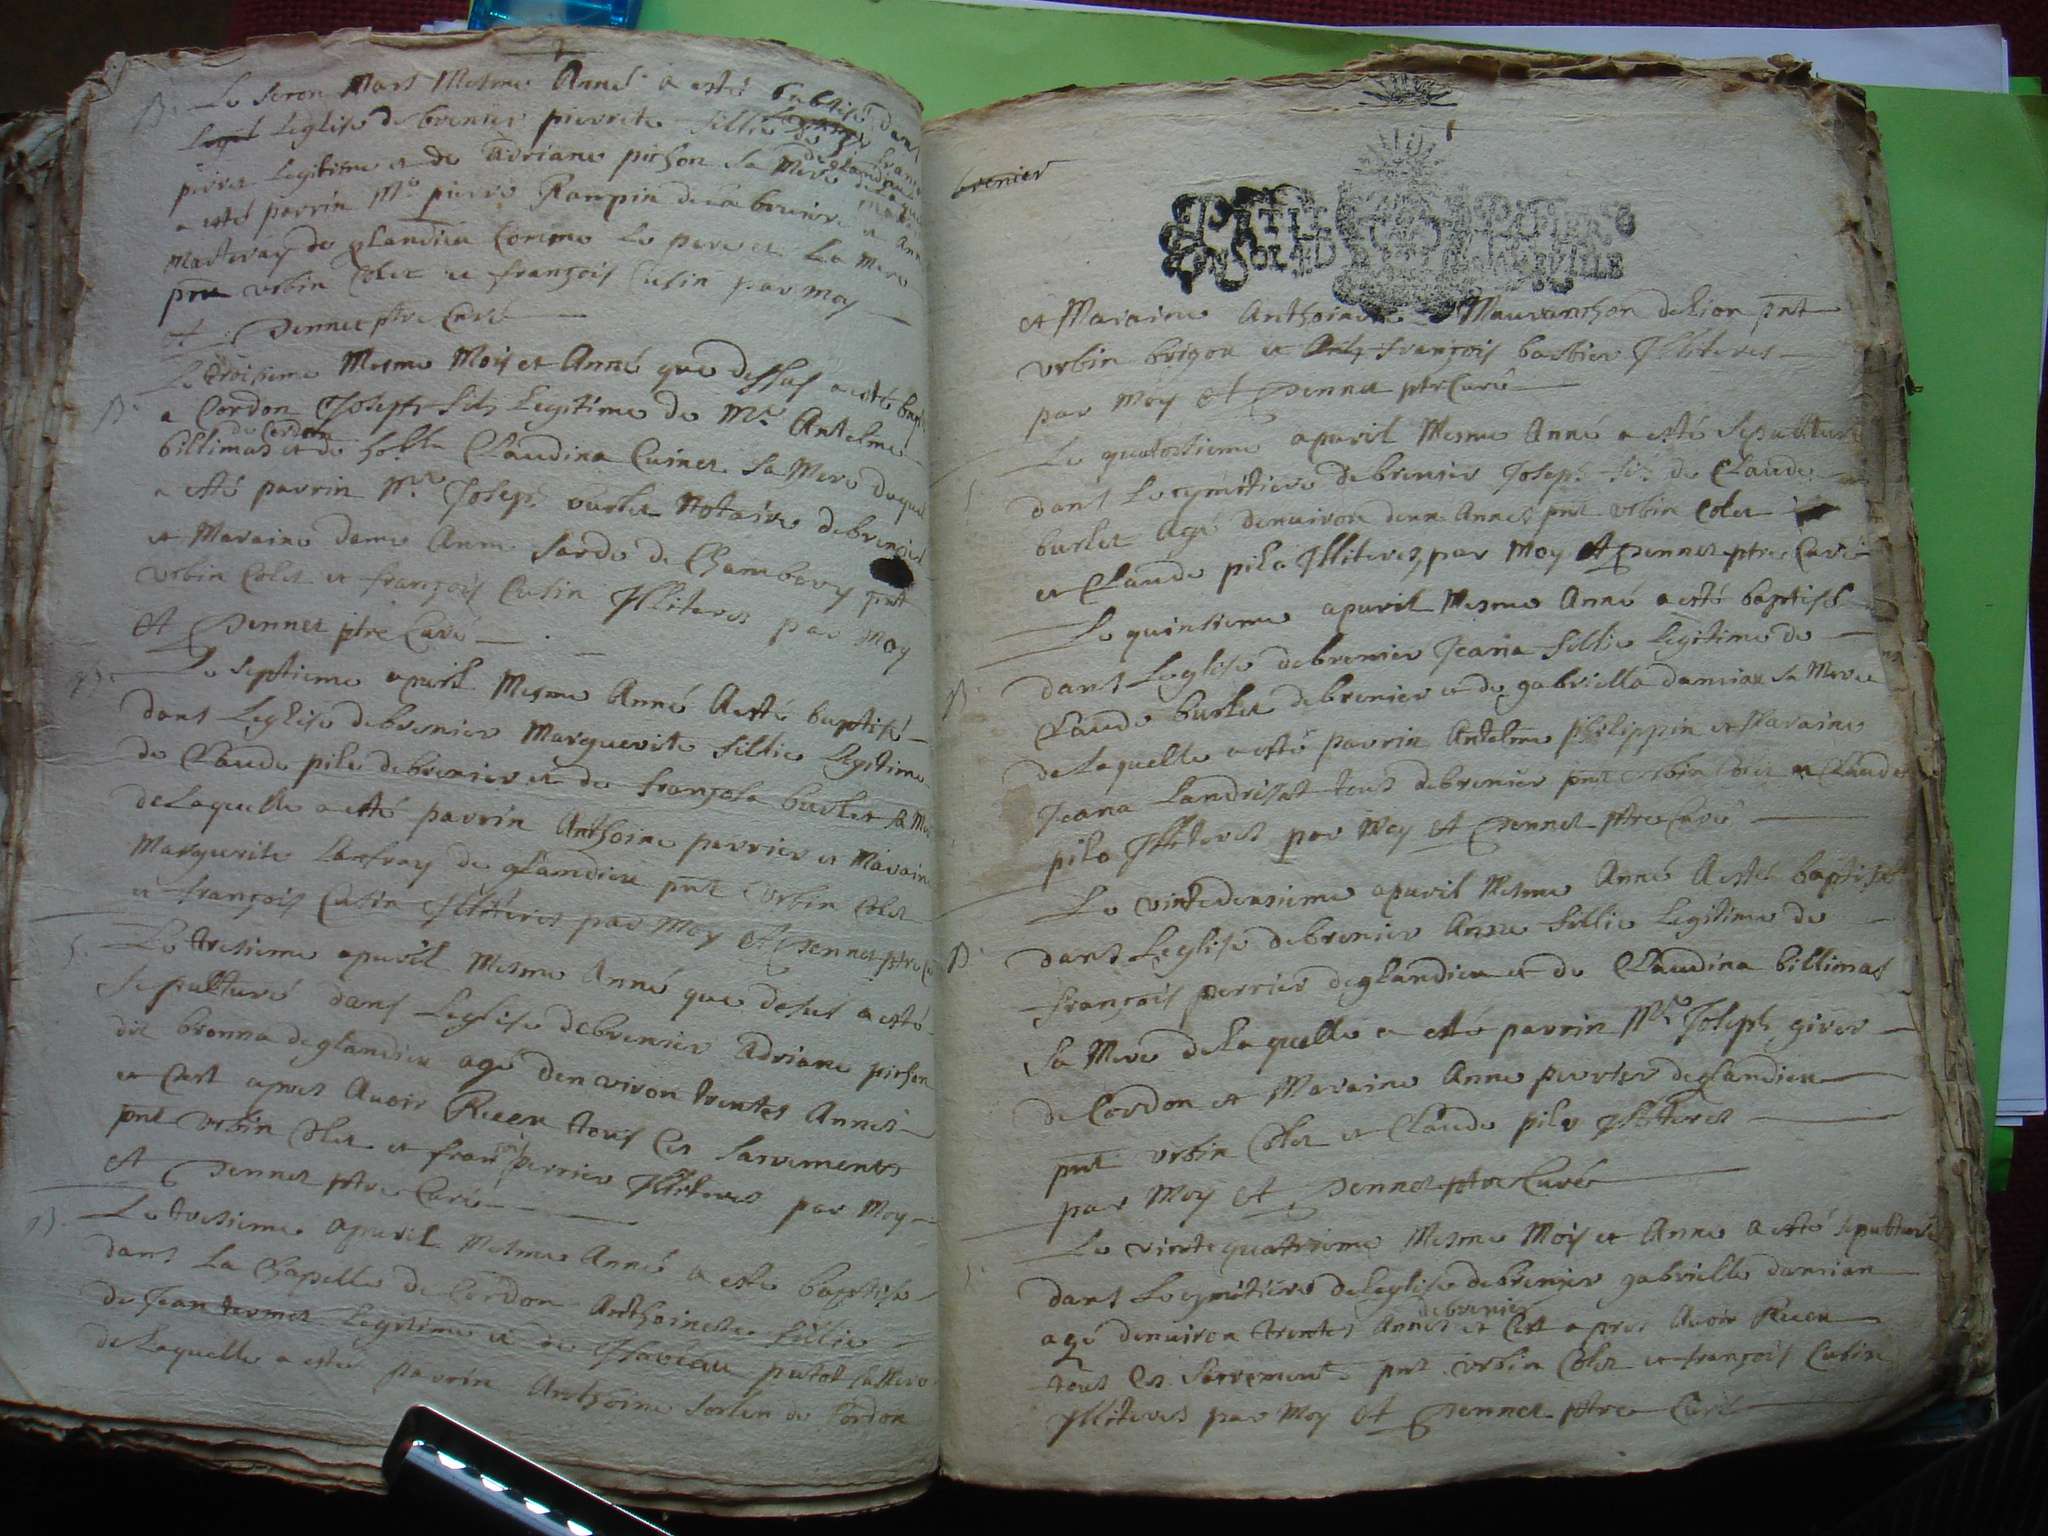 B. Le segon Mars Mesme Anné a esté baptisé dans
Leglise debrenier pierrete fillie de
perrer Legitime et de Adriane pichon sa Mere
a esté parrin Mr pierre Rampin
de glandieu Comme Le pere et La Mere
pnt vrbin Colet et françois Cutin par moy
et Dennet ptre Curé
B. Le troisieme Mesme Mois et Anné que dessus a esté bapt
a Cordon Joseph fils Legitime de Mr. Antelme
de Cordon
billimas et de Claudina Cuinet sa Mere duquel
a esté parrin Mr Joseph burlet Notaire debrenier
et Maraine dame Anne Sarde de Chambery pnt
vrbin Colet et françois Cutin Illiteres par Moy
et Dennet ptre Curé
B. Le septieme apvril Mesme Anné A esté baptisé
dans Leglise debrenier Marguerite fillie Legitime
de Claude pile debrenier et de françosa burlet sa Me
deLaquelle a esté parrin Anthoine perrier et Maraine
Marguerite Lanfrey de glandieu pnt vrbin Colet
et françois Cutin Illiteres par Moy et Dennet ptre C
S. Le tresieme apvril Mesme Anné que desus a esté
sepulturé dans Leglise debrenier Adriane pichon
dit bronna deglandieu agé denviron trentes Annes
et Cest apres Avoir Receu tous Ces Sacrements
pnt vrbin Colet et françois perrier Illiteres par Moy
et Dennet ptre Curé
B. Le tresieme apvril Mesme Anné a esté baptisé
dans La Chapelle de Cordon Anthoinette fillie
de Jean Legitime et de putot sa Mere
deLaquelle a esté parrin Anthoine Sorlin de Cordon
brenier
et Maraine Anthoinette de Lion pnt
vrbin brigon et françois barbier Illiteres
par Moy et Dennet ptre Curé
S. Le quatosieme apvril Mesme Anné a esté Sepulturé
dans Le cymetiere debrenier Joseph fis de Claude
burlet Agé denviron Annes pnt vrbin Colet
et Claude pile Illiteres par Moy et Dennet ptre Curé
Le quinsieme apvril Mesme Anné a esté baptisé
B. dans Leglise debrenier Jeana fillie Legitime de
Claude burlet debrenier et de gabriella damian sa Mere
deLaquelle a esté parrin Antelme philippin et Maraine
Jeana Landrisat tous debrenier pnt vrbin Colet et Claude
pile Illiteres par Moy et Dennet ptre Curé
Le vintedeusieme apvril Mesme Anné A esté baptisée
B. dans Leglise debrenier Anne fillie Legitime de
françois perrier deglandieu et de Claudina billimas
sa Mere deLaquelle a esté parrin Mr Joseph giver
de Cordon et Maraine Anne perrier deglandieu
pnt vrbin Colet et Claude pile Illiteres
par Moy et Dennet ptre Curé
Le vintequatrieme Mesme Mois et Anne a esté sepulturé
S. dans Le cymetiere de Leglise debrenier gabrielle damian
debrenier
agé denviron trentes Annes et Cest apres Avoir Receu
tous Ces Sacrements pnt vrbin Colet et françois Cutin
Illiteres par Moy et Dennet ptre Curé